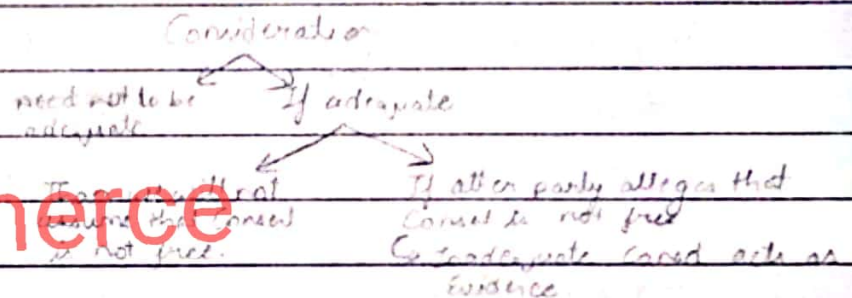 Consideration
need not to be
adequate
If adequate
assume that consent
is not free.
If other party alleges that
Consent is not free
Inadequate consd acts as
Evidence
merce